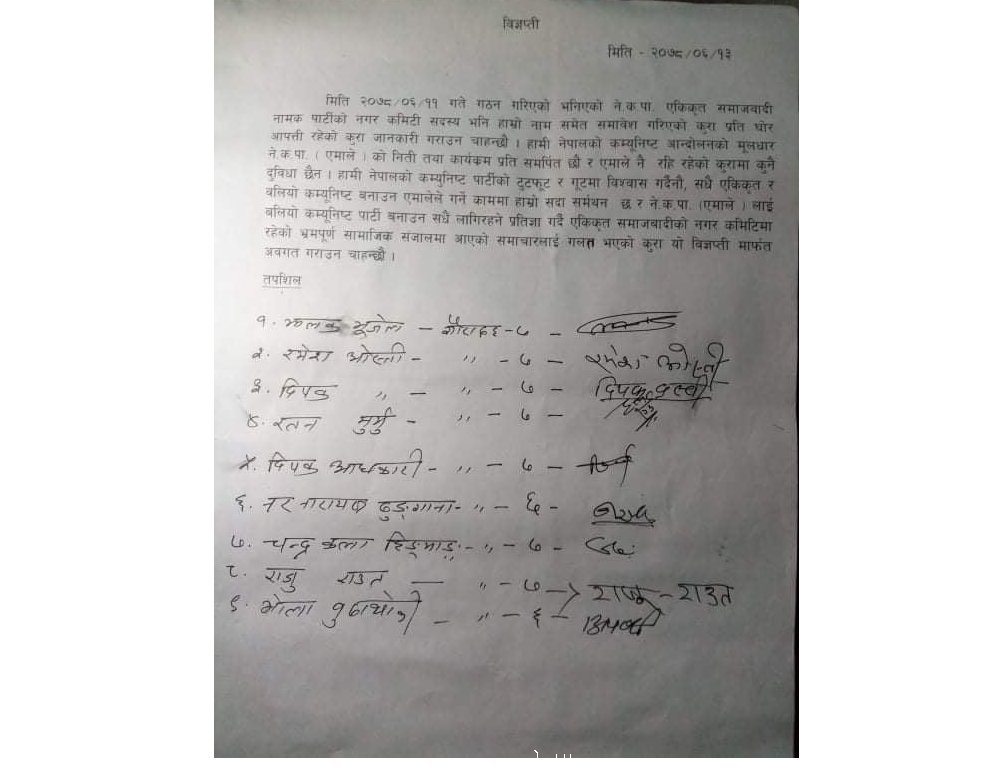 विज्ञप्ती
मिति - २०७८/०६/१३
मिति २०७८/०६/११ गते गठन गरिएको भनिएको ने.क.पा. एकिकृत समाजवादी
नामक पार्टीको नगर कमिटी सदस्य भनि हाम्रो नाम समेत समावेश गरिएको कुरा प्रति घोर
आपत्ती रहेको कुरा जानकारी गराउन चाहन्छौ । हामी नेपालको कम्यूनिष्ट आन्दोलनको मूलधार
ने.क.पा. ( एमाले ) को निती तथा कार्यक्रम प्रति समर्पित छौ र एमाले नै रहि रहेको कुरामा कुनै
दुविधा छैन । हामी नेपालको कम्युनिष्ट पार्टीको टुटफूट र गूटमा विश्वास गर्दैनौ, सधै एकिकृत र
बलियो कम्युनिष्ट बनाउन एमालेले गर्ने काममा हाम्रो सदा सर्मथन छ र ने.क.पा. (एमाले ) लाई
बलियो कम्युनिष्ट पार्टी बनाउन सधै लागिरहने प्रतिज्ञा गर्दै एकिकृत समाजवादीको नगर कमिटिमा
रहेको भ्रमपूर्ण सामाजिक संजालमा आएको समाचारलाई गलत भएको कुरा यो विज्ञप्ती मार्फत
अवगत गराउन चाहन्छौ ।
तपशिल
१. झलक भूजेल - गौरादह - ७ -
२. रमेश ओस्ती - ,, - ७ - रमेश ओस्ती
३. दिपक ,, - ,, - ७ - दिपक
४. रतन मुर्मु - ,, - ७ -
५. दिपक अधिकारी - ,, - ७ -
६. नर नारायण ढुङ्गाना - ,, - ६ -
७. चन्द्र कला - ,, - ७ -
८. राजु राउत - ,, - ७ - राजु - राउत
९. भोला बुढाथोकी - ,, - ६ -